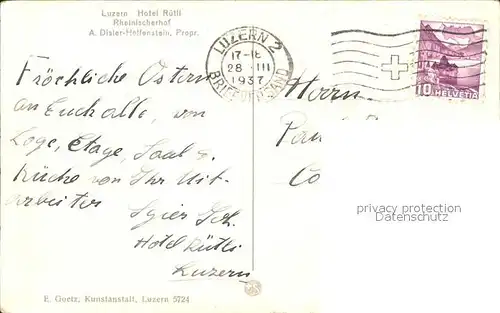 Luzern Hotel Rütli
Rheinischerhof
A. Disler-Helfenstein, Propr.
LUZERN 2
17-18
28 III
1937
BRIEFVERSAND
10 HELVETIA
Fröhliche Ostern
an Euch alle, von
Loge, Etage, Saal &
Küche von Ihr Mit-
arbeiter
Sch.
Hotel Rütli
Luzern
Herrn
privacy protection
Datenschutz
E. Goetz, Kunstanstalt, Luzern 5724